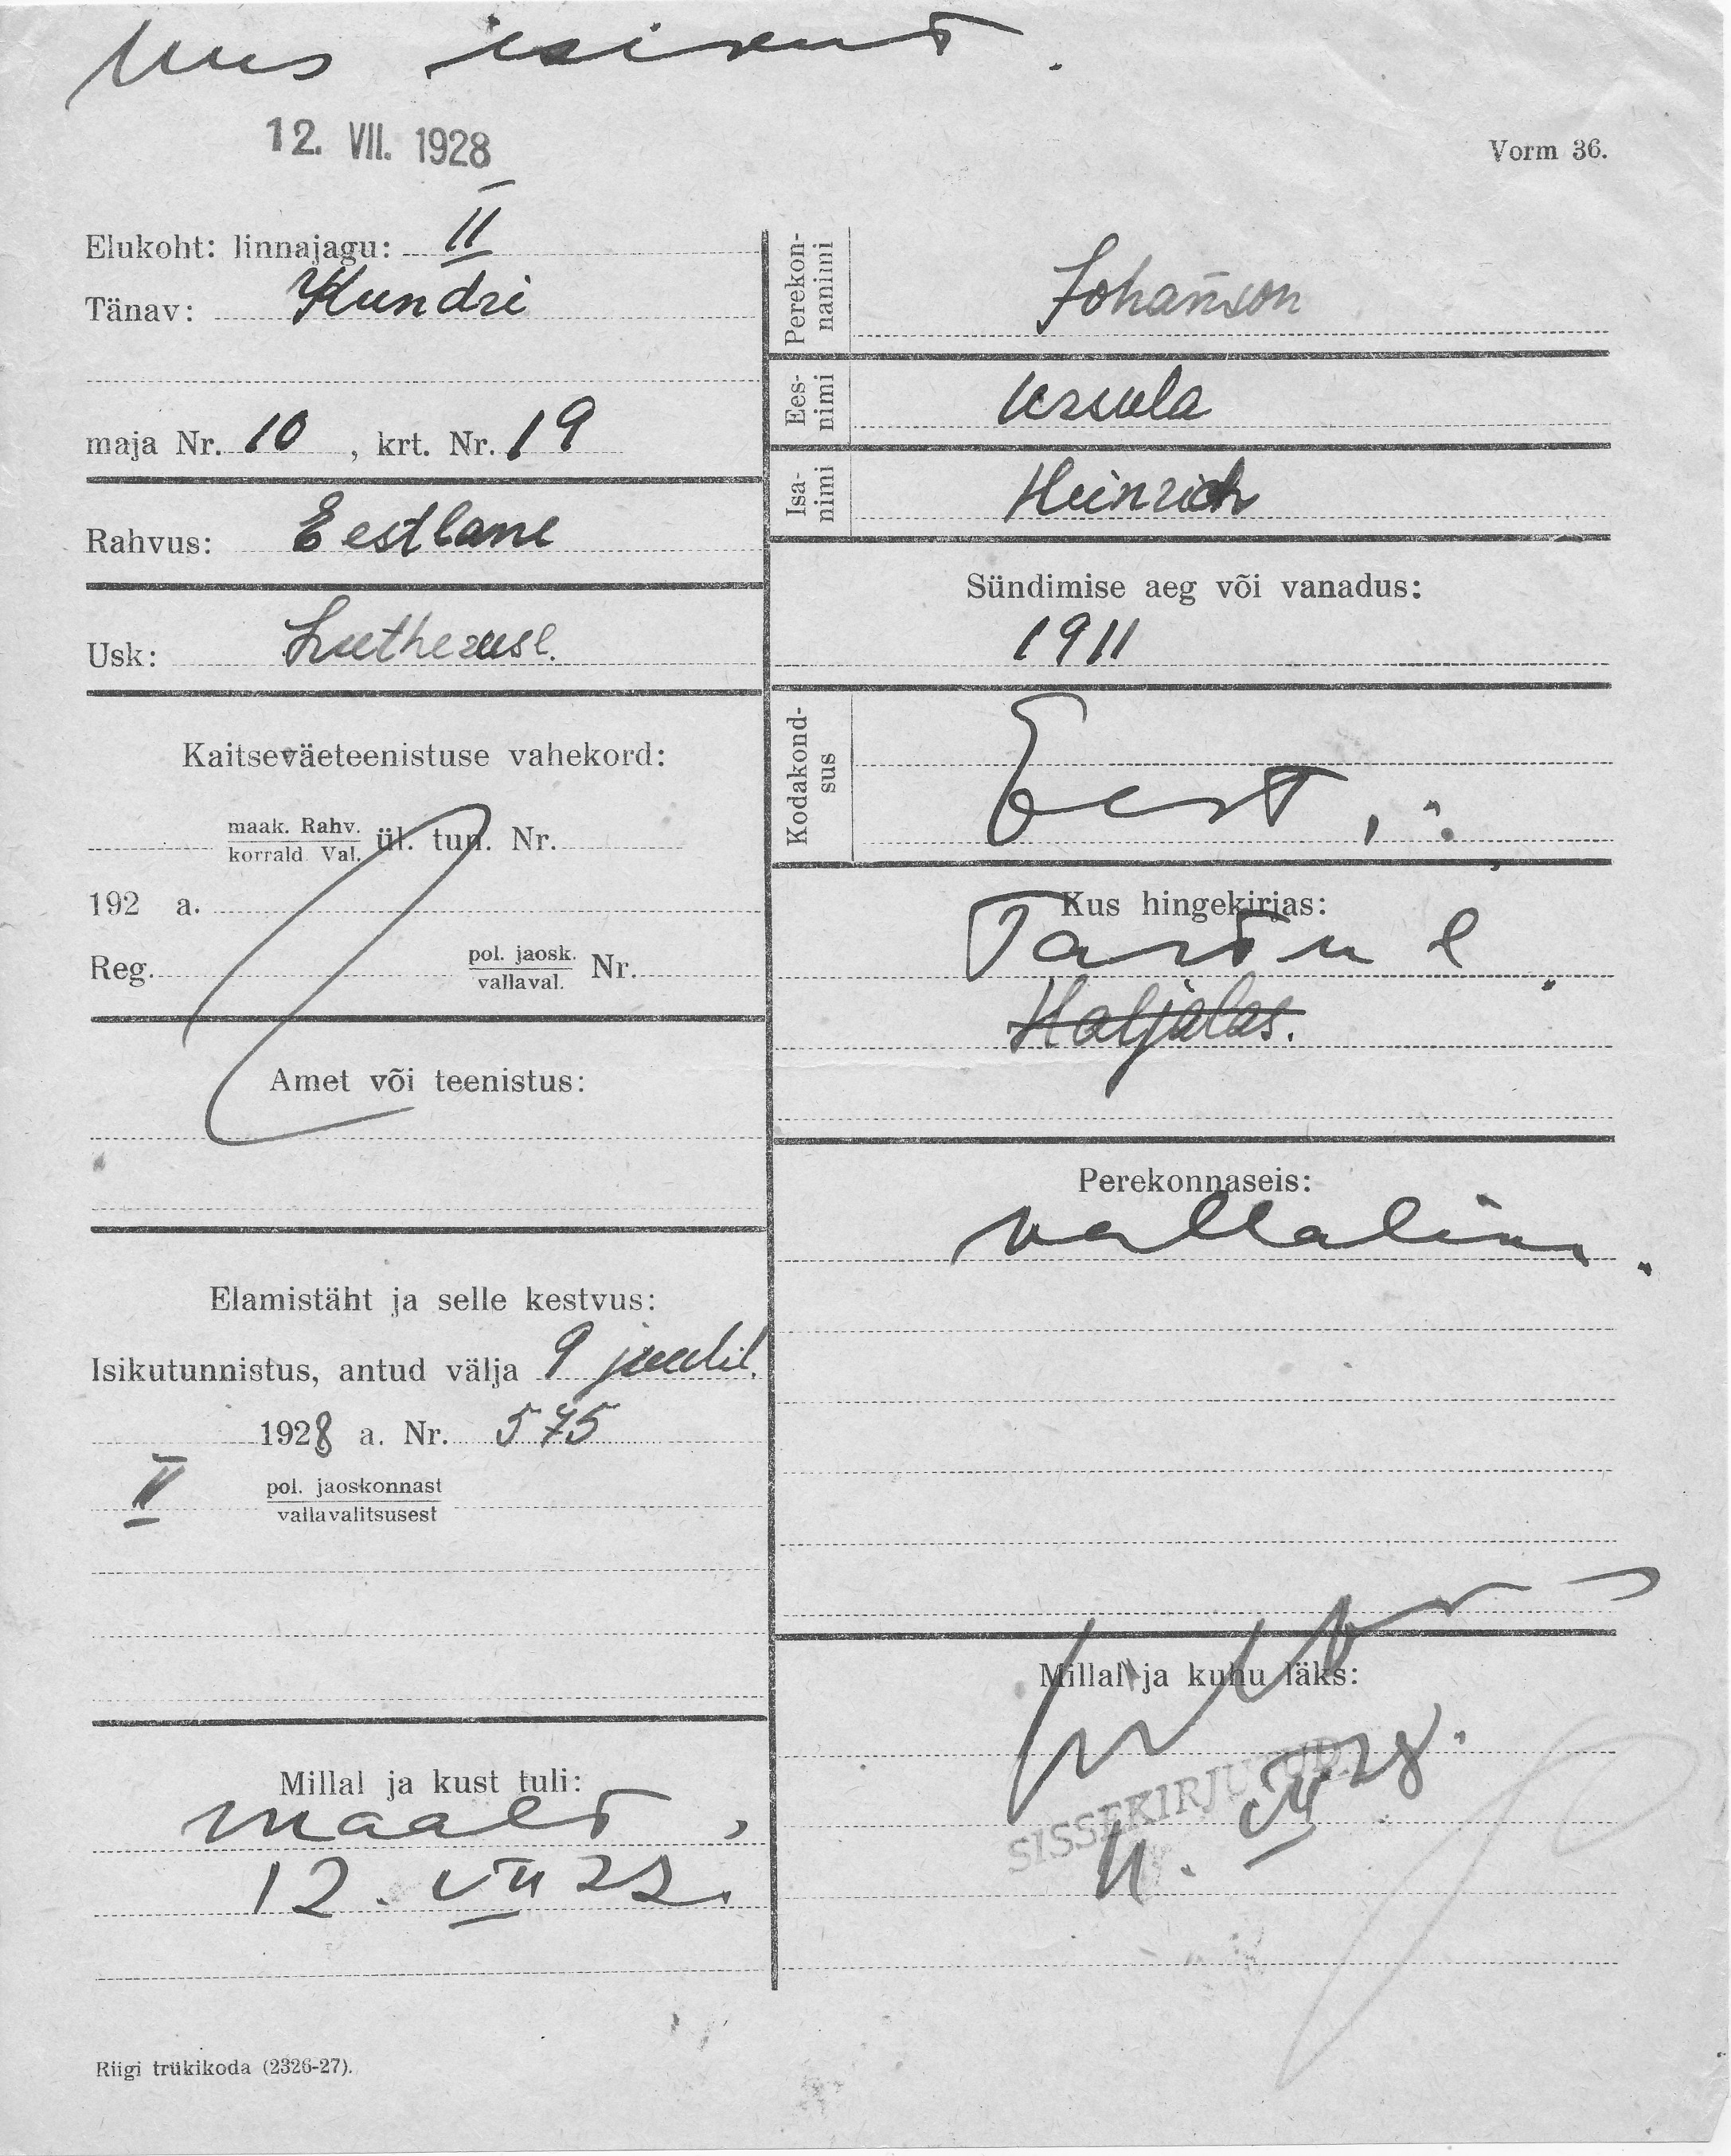 Uus isikut.
12. VII. 1928
Vorm 36.
Elukoht: linnajagu: II
Tänav: Kundri
maja Nr. 10, krt. Nr. 19
Rahvus: Eestlane
Usk: Lutheruse.
Kaitseväeteenistuse vahekord:
maak. Rahv.
korrald. Val. ül. tun. Nr.
192 a.
Reg. pol. jaosk. Nr.
vallaval.
Amet või teenistus:
Elamistäht ja selle kestvus:
Isikutunnistus, antud välja 9 juulil.
1928 a. Nr. 575
II pol. jaoskonnast
vallavalitsusest
Millal ja kust tuli:
maalt,
12. VII
Perekon-
nanimi
Johanson
Ees-
nimi
Ursula
Isa-
nimi
Heinrich
Sündimise aeg või vanadus:
1911
Kodakond-
sus
Eest,
Kus hingekirjas:
Haljalas.
Perekonnaseis:
vallaline.
Millal ja kuhu läks:
SISSEKIRJUTUD
28.
Riigi trükikoda (2326-27).